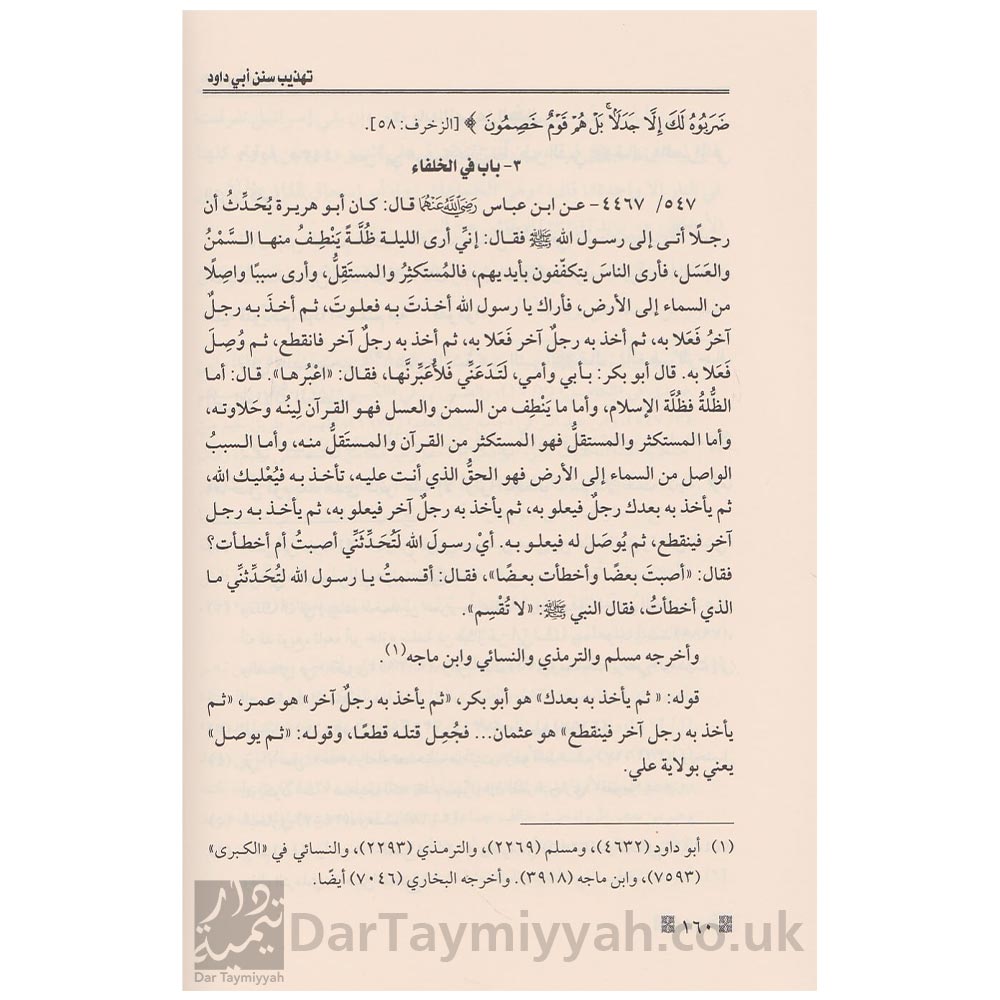 تهذيب سنن أبي داود
ضَرَبُوهُ لَكَ إِلَّا جَدَلًا ۚ بَلْ هُمْ قَوْمٌ خَصِمُونَ ﴾ [الزخرف: ٥٨].
٣- باب في الخلفاء
٥٤٧/ ٤٤٦٧- عن ابن عباس رَضِيَ اللَّهُ عَنْهُمَا قال: كان أبو هريرة يُحَدِّثُ أن
رجلًا أتى إلى رسول الله ﷺ فقال: إنِّي أرى الليلة ظُلَّةً يَنْطِفُ منها السَّمْنُ
والعَسَل، فأرى الناسَ يتكفّفون بأيديهم، فالمُستكثِرُ والمستَقِلُّ، وأرى سببًا واصِلًا
من السماء إلى الأرض، فأراك يا رسول الله أخذتَ به فعلوتَ، ثم أخذَ به رجلٌ
آخرُ فَعَلا به، ثم أخذ به رجلٌ آخر فَعَلا به، ثم أخذ به رجلٌ آخر فانقطع، ثم وُصِلَ
فَعَلا به. قال أبو بكر: بأبي وأمي، لَتَدَعَنِّي فَلأُعَبِّرنَّها، فقال: «اعْبُرها». قال: أما
الظُّلةُ فظُلَّة الإسلام، وأما ما يَنْطِف من السمن والعسل فهو القرآن لِينُه وحَلاوته،
وأما المستكثر والمستقلُّ فهو المستكثر من القرآن والمستَقلُّ منه، وأما السببُ
الواصل من السماء إلى الأرض فهو الحقُّ الذي أنت عليه، تأخذ به فيُعْليك الله،
ثم يأخذ به بعدك رجلٌ فيعلو به، ثم يأخذ به رجلٌ آخر فيعلو به، ثم يأخذ به رجل
آخر فينقطع، ثم يُوصَل له فيعلو به. أيْ رسولَ الله لَتُحَدِّثَنِّي أصبتُ أم أخطأت؟
فقال: «أصبتَ بعضًا وأخطأت بعضًا»، فقال: أقسمتُ يا رسول الله لتُحَدِّثنِّي ما
الذي أخطأتُ، فقال النبي ﷺ: «لا تُقْسِم».
وأخرجه مسلم والترمذي والنسائي وابن ماجه(١).
قوله: « ثم يأخذ به بعدك» هو أبو بكر، «ثم يأخذ به رجلٌ آخر» هو عمر، «ثم
يأخذ به رجل آخر فينقطع» هو عثمان... فجُعِل قتله قطعًا، وقوله: «ثم يوصل»
يعني بولاية علي.
(١) أبو داود (٤٦٣٢)، ومسلم (٢٢٦٩)، والترمذي (٢٢٩٣)، والنسائي في «الكبرى»
(٧٥٩٣)، وابن ماجه (٣٩١٨). وأخرجه البخاري (٧٠٤٦) أيضًا.
١٦٠
دار تيمية
Dar Taymiyyah
DarTaymiyyah.co.uk